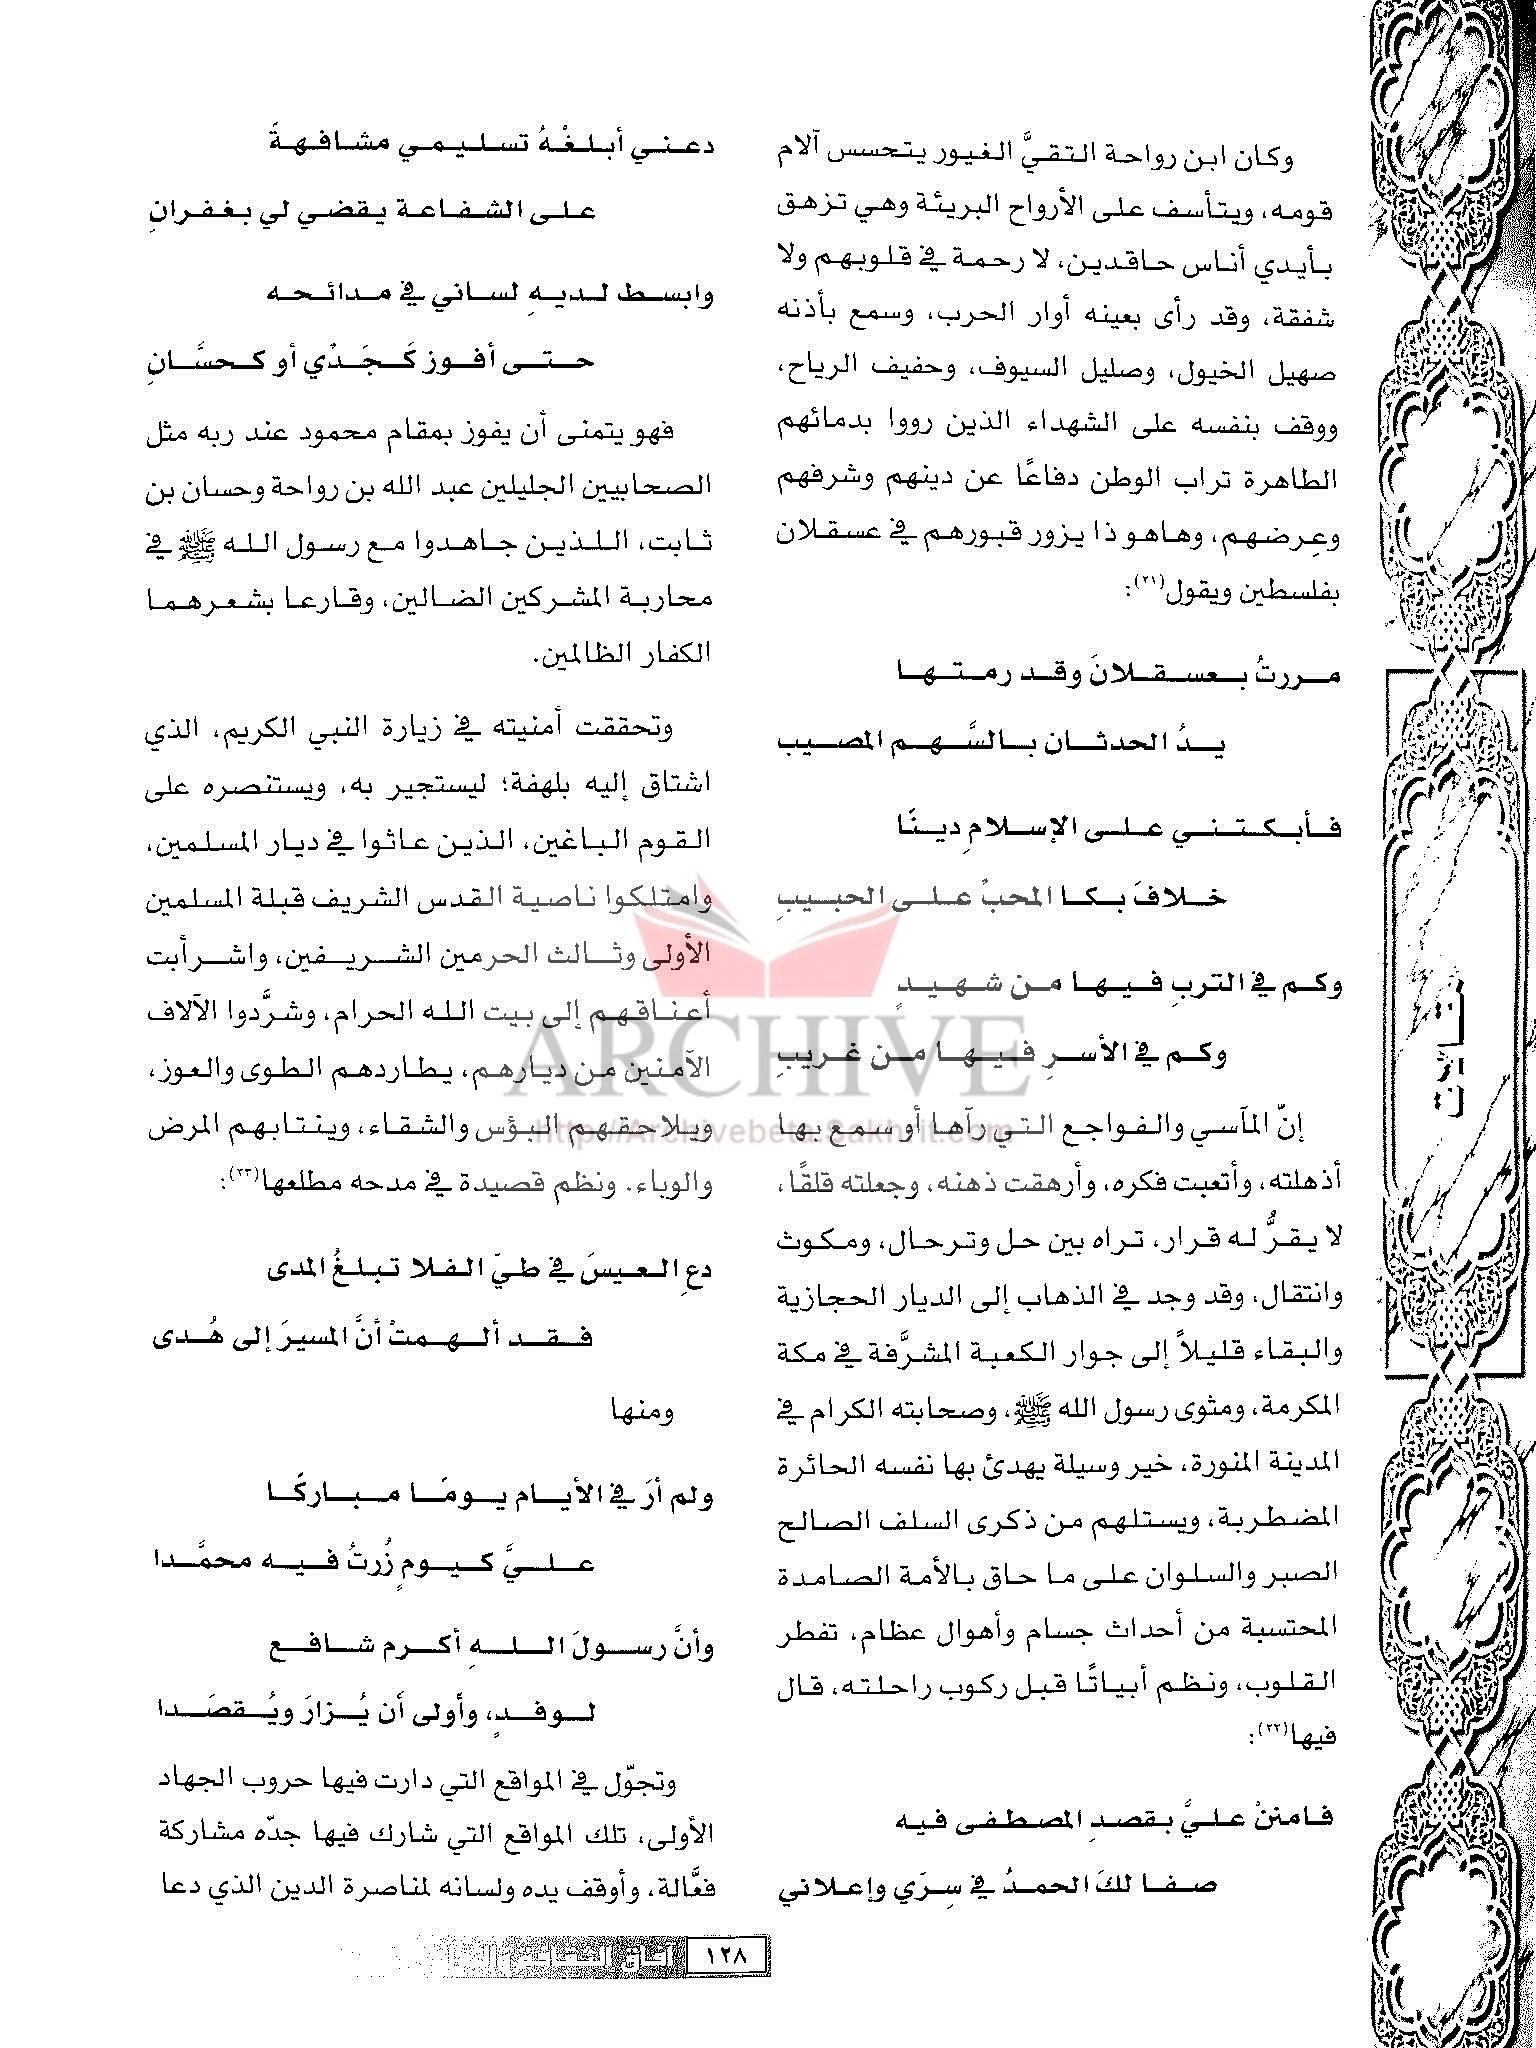 وكان ابن رواحة التقيَّ الغيور يتحسس آلام
قومه، ويتأسف على الأرواح البريئة وهي تزهق
بأيدي أناس حاقدين، لا رحمة في قلوبهم ولا
شفقة، وقد رأى بعينه أوار الحرب، وسمع بأذنه
صهيل الخيول، وصليل السيوف، وحفيف الرياح،
ووقف بنفسه على الشهداء الذين رووا بدمائهم
الطاهرة تراب الوطن دفاعًا عن دينهم وشرفهم
وعِرضهم، وهاهو ذا يزور قبورهم في عسقلان
بفلسطين ويقول(٢١):
مررتُ بعسقلانَ وقد رمتها
يدُ الحدثان بالسَّهم المصيب
فأبكتني على الإسلامِ دينًا
خلافَ بكا المحبِّ على الحبيبِ
وكم في التربِ فيها من شهيدٍ
وكم في الأسرِ فيها من غريبِ
إنّ المآسي والفواجع التي رآها أو سمع بها
أذهلته، وأتعبت فكره، وأرهقت ذهنه، وجعلته قلقًا،
لا يقرُّ له قرار، تراه بين حل وترحال، ومكوث
وانتقال، وقد وجد في الذهاب إلى الديار الحجازية
والبقاء قليلاً إلى جوار الكعبة المشرَّفة في مكة
المكرمة، ومثوى رسول الله ﷺ، وصحابته الكرام في
المدينة المنورة، خير وسيلة يهدئ بها نفسه الحائرة
المضطربة، ويستلهم من ذكرى السلف الصالح
الصبر والسلوان على ما حاق بالأمة الصامدة
المحتسبة من أحداث جسام وأهوال عظام، تفطر
القلوب، ونظم أبياتًا قبل ركوب راحلته، قال
فيها(٢٢):
فامننْ عليَّ بقصدِ المصطفى فيه
صفا لكَ الحمدُ في سِرّي وإعلاني
دعني أبلغْهُ تسليمي مشافهةً
على الشفاعة يقضي لي بغفرانِ
وابسط لديهِ لساني في مدائحه
حتى أفوز كَجَدّي أو كحسَّانِ
فهو يتمنى أن يفوز بمقام محمود عند ربه مثل
الصحابيين الجليلين عبد الله بن رواحة وحسان بن
ثابت، اللذين جاهدوا مع رسول الله ﷺ في
محاربة المشركين الضالين، وقارعا بشعرهما
الكفار الظالمين.
وتحققت أمنيته في زيارة النبي الكريم، الذي
اشتاق إليه بلهفة؛ ليستجير به، ويستنصره على
القوم الباغين، الذين عاثوا في ديار المسلمين،
وامتلكوا ناصية القدس الشريف قبلة المسلمين
الأولى وثالث الحرمين الشريفين، واشرأبت
أعناقهم إلى بيت الله الحرام، وشرَّدوا الآلاف
الآمنين من ديارهم، يطاردهم الطوى والعوز،
ويلاحقهم البؤس والشقاء، وينتابهم المرض
والوباء. ونظم قصيدة في مدحه مطلعها(٢٣):
دعِ العيسَ في طيّ الفلا تبلغُ المدى
فقد ألهمتْ أنَّ المسيرَ إلى هُدى
ومنها
ولم أرَ في الأيام يومًا مباركًا
عليَّ كيومٍ زُرتُ فيه محمَّدا
وأنَّ رسولَ اللهِ أكرم شافع
لوفدٍ، وأولى أن يُزارَ ويُقصَدا
وتجوّل في المواقع التي دارت فيها حروب الجهاد
الأولى، تلك المواقع التي شارك فيها جدّه مشاركة
فعَّالة، وأوقف يده ولسانه لمناصرة الدين الذي دعا
مقالات
ARCHIVE
http://Archivebeta.Sakhrit.com
١٢٨
آفاق الثقافة